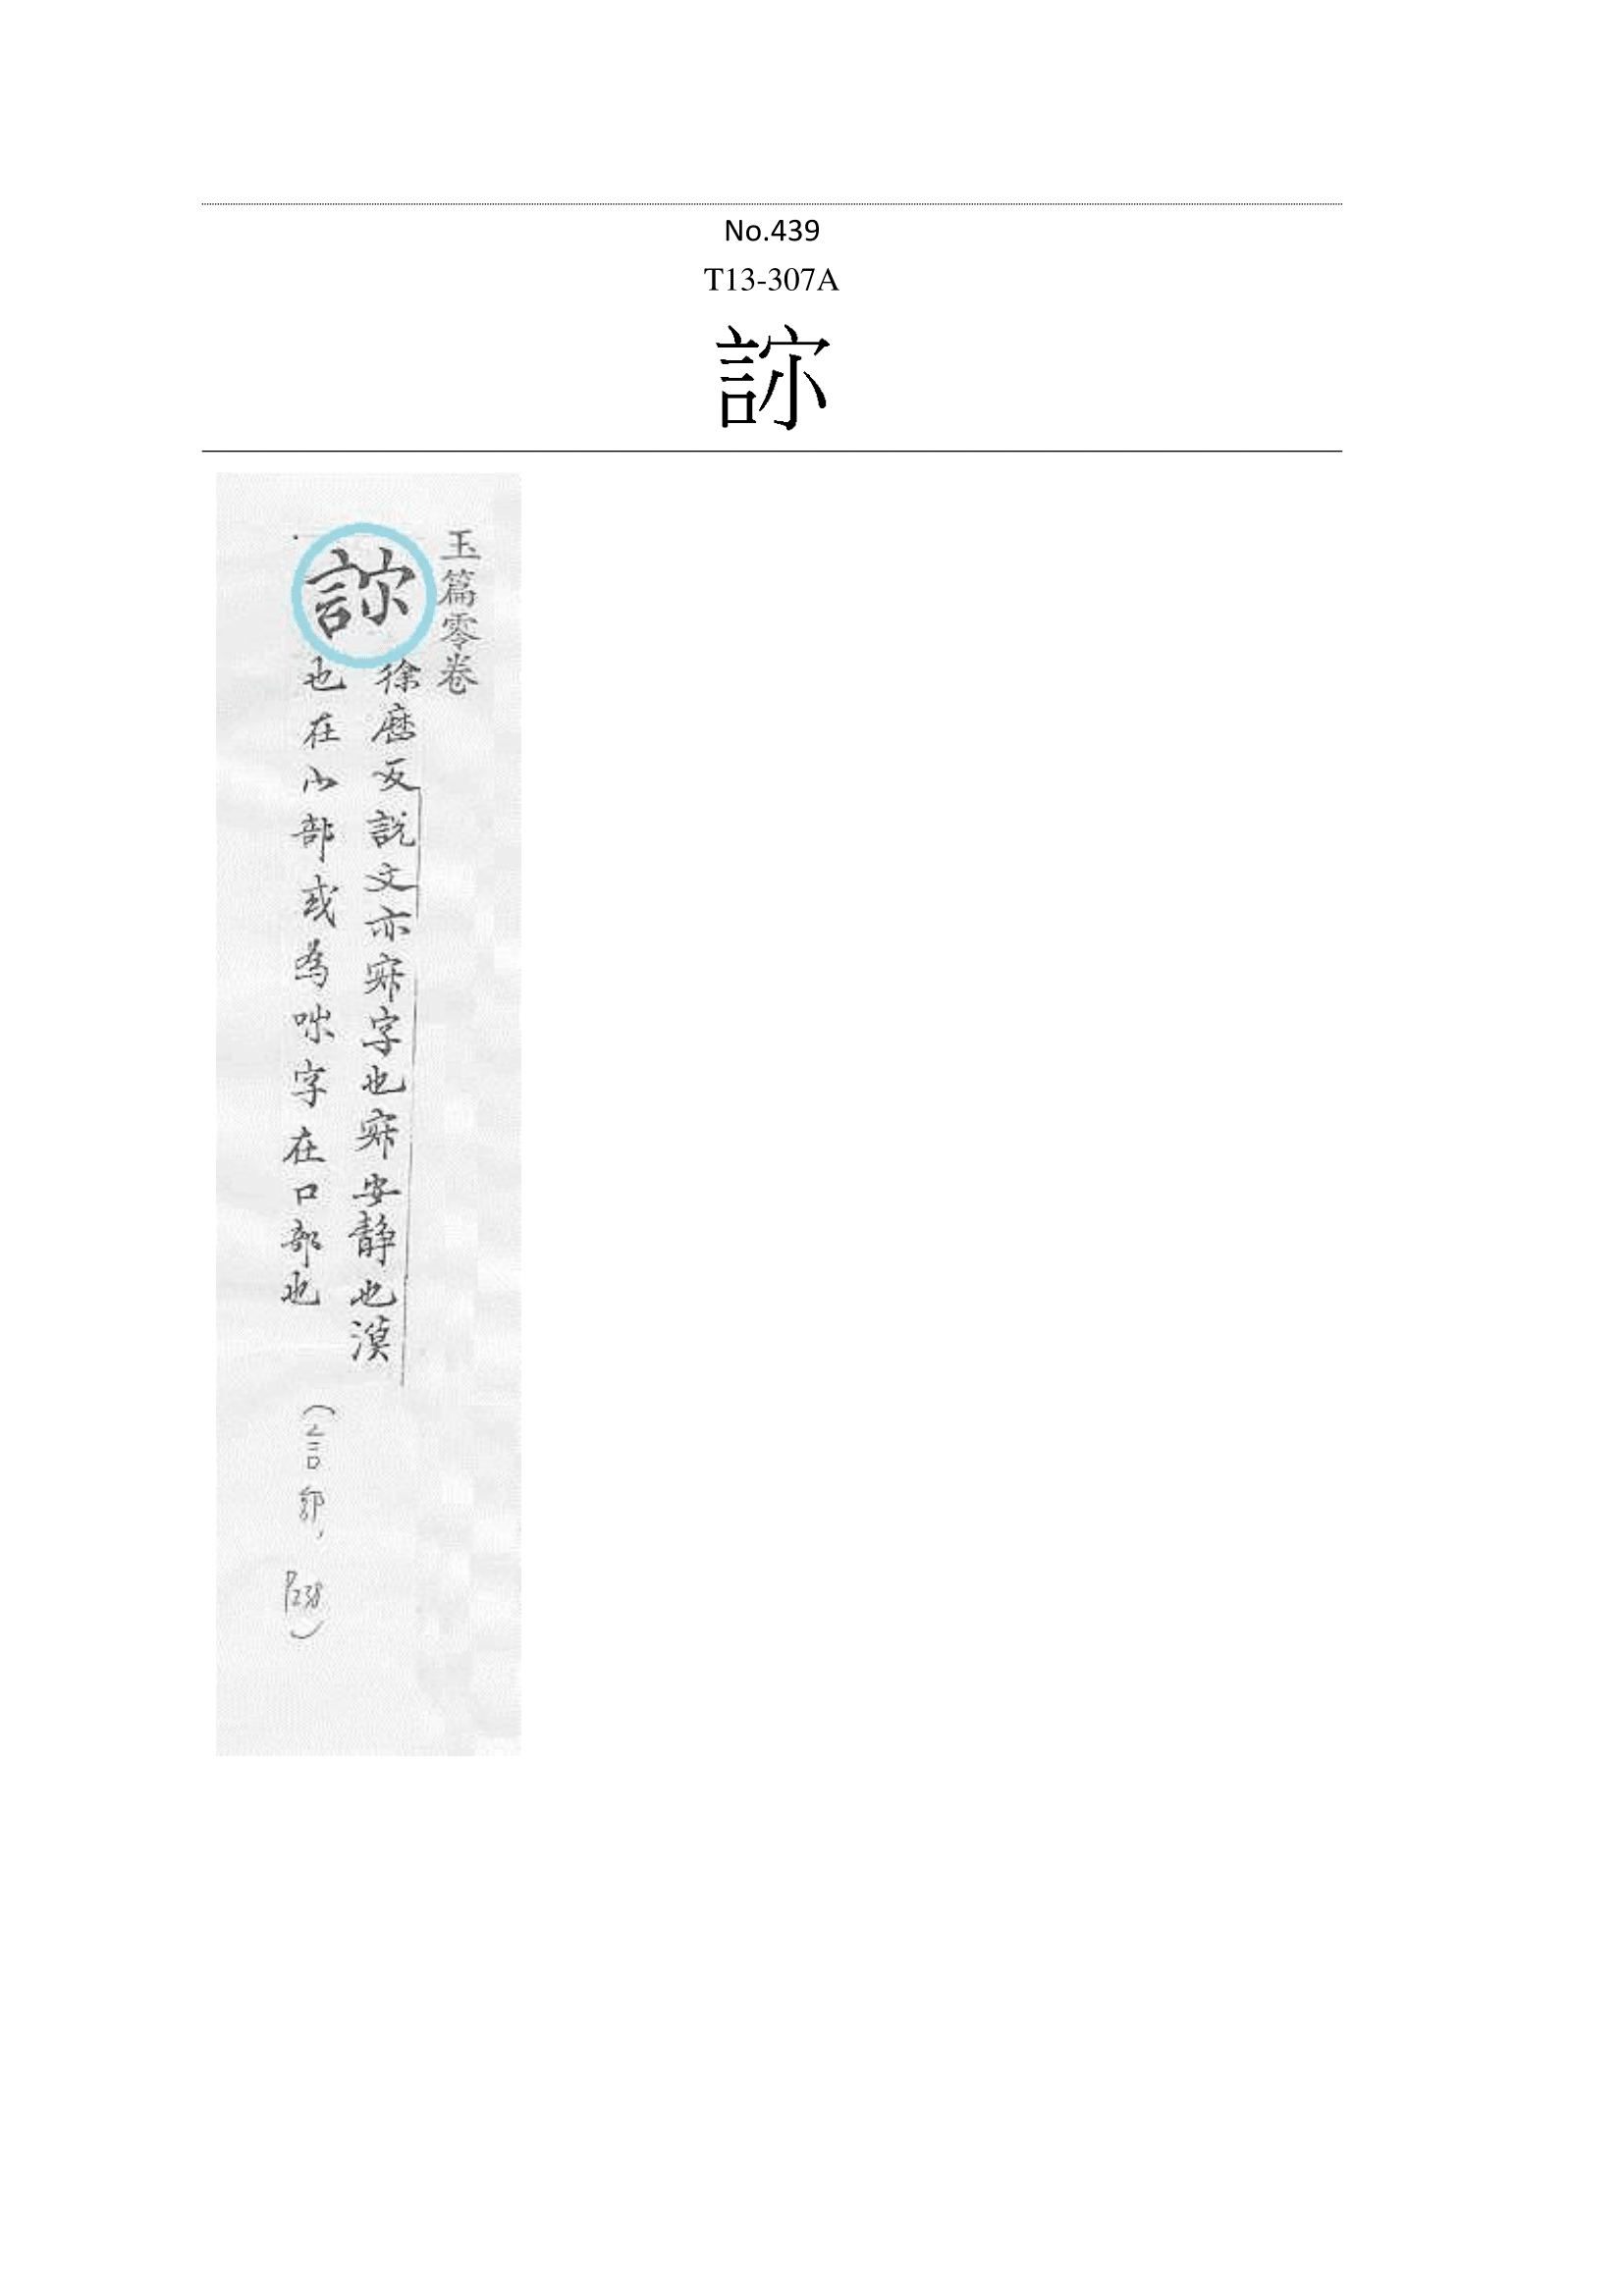 No.439
T13-307A
玉篇零卷
徐歷反說文亦寂字也安靜也漠
也在宀部或為字在口部也
(言部, P238)